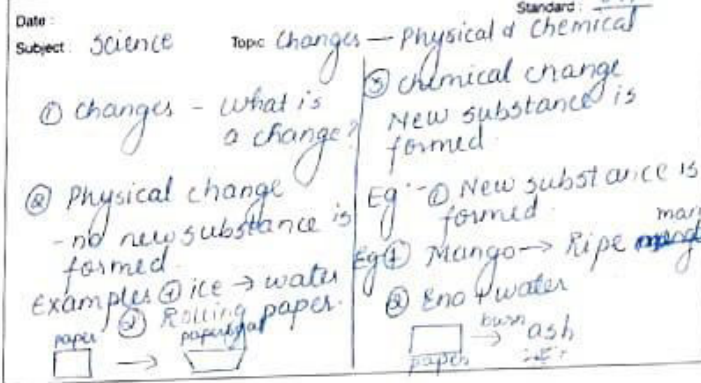 Date :
Standard :
Subject : Science Topic Changes — Physical & Chemical
① Changes - what is
a change?
② Physical change
- no new substance is
formed.
Examples ① ice → water
② Rolling paper.
paper →
③ chemical change
New substance is
formed.
Eg :- ① New substance is
formed.
Eg ① Mango → Ripe
② Eno + water
burn
→ ash
paper